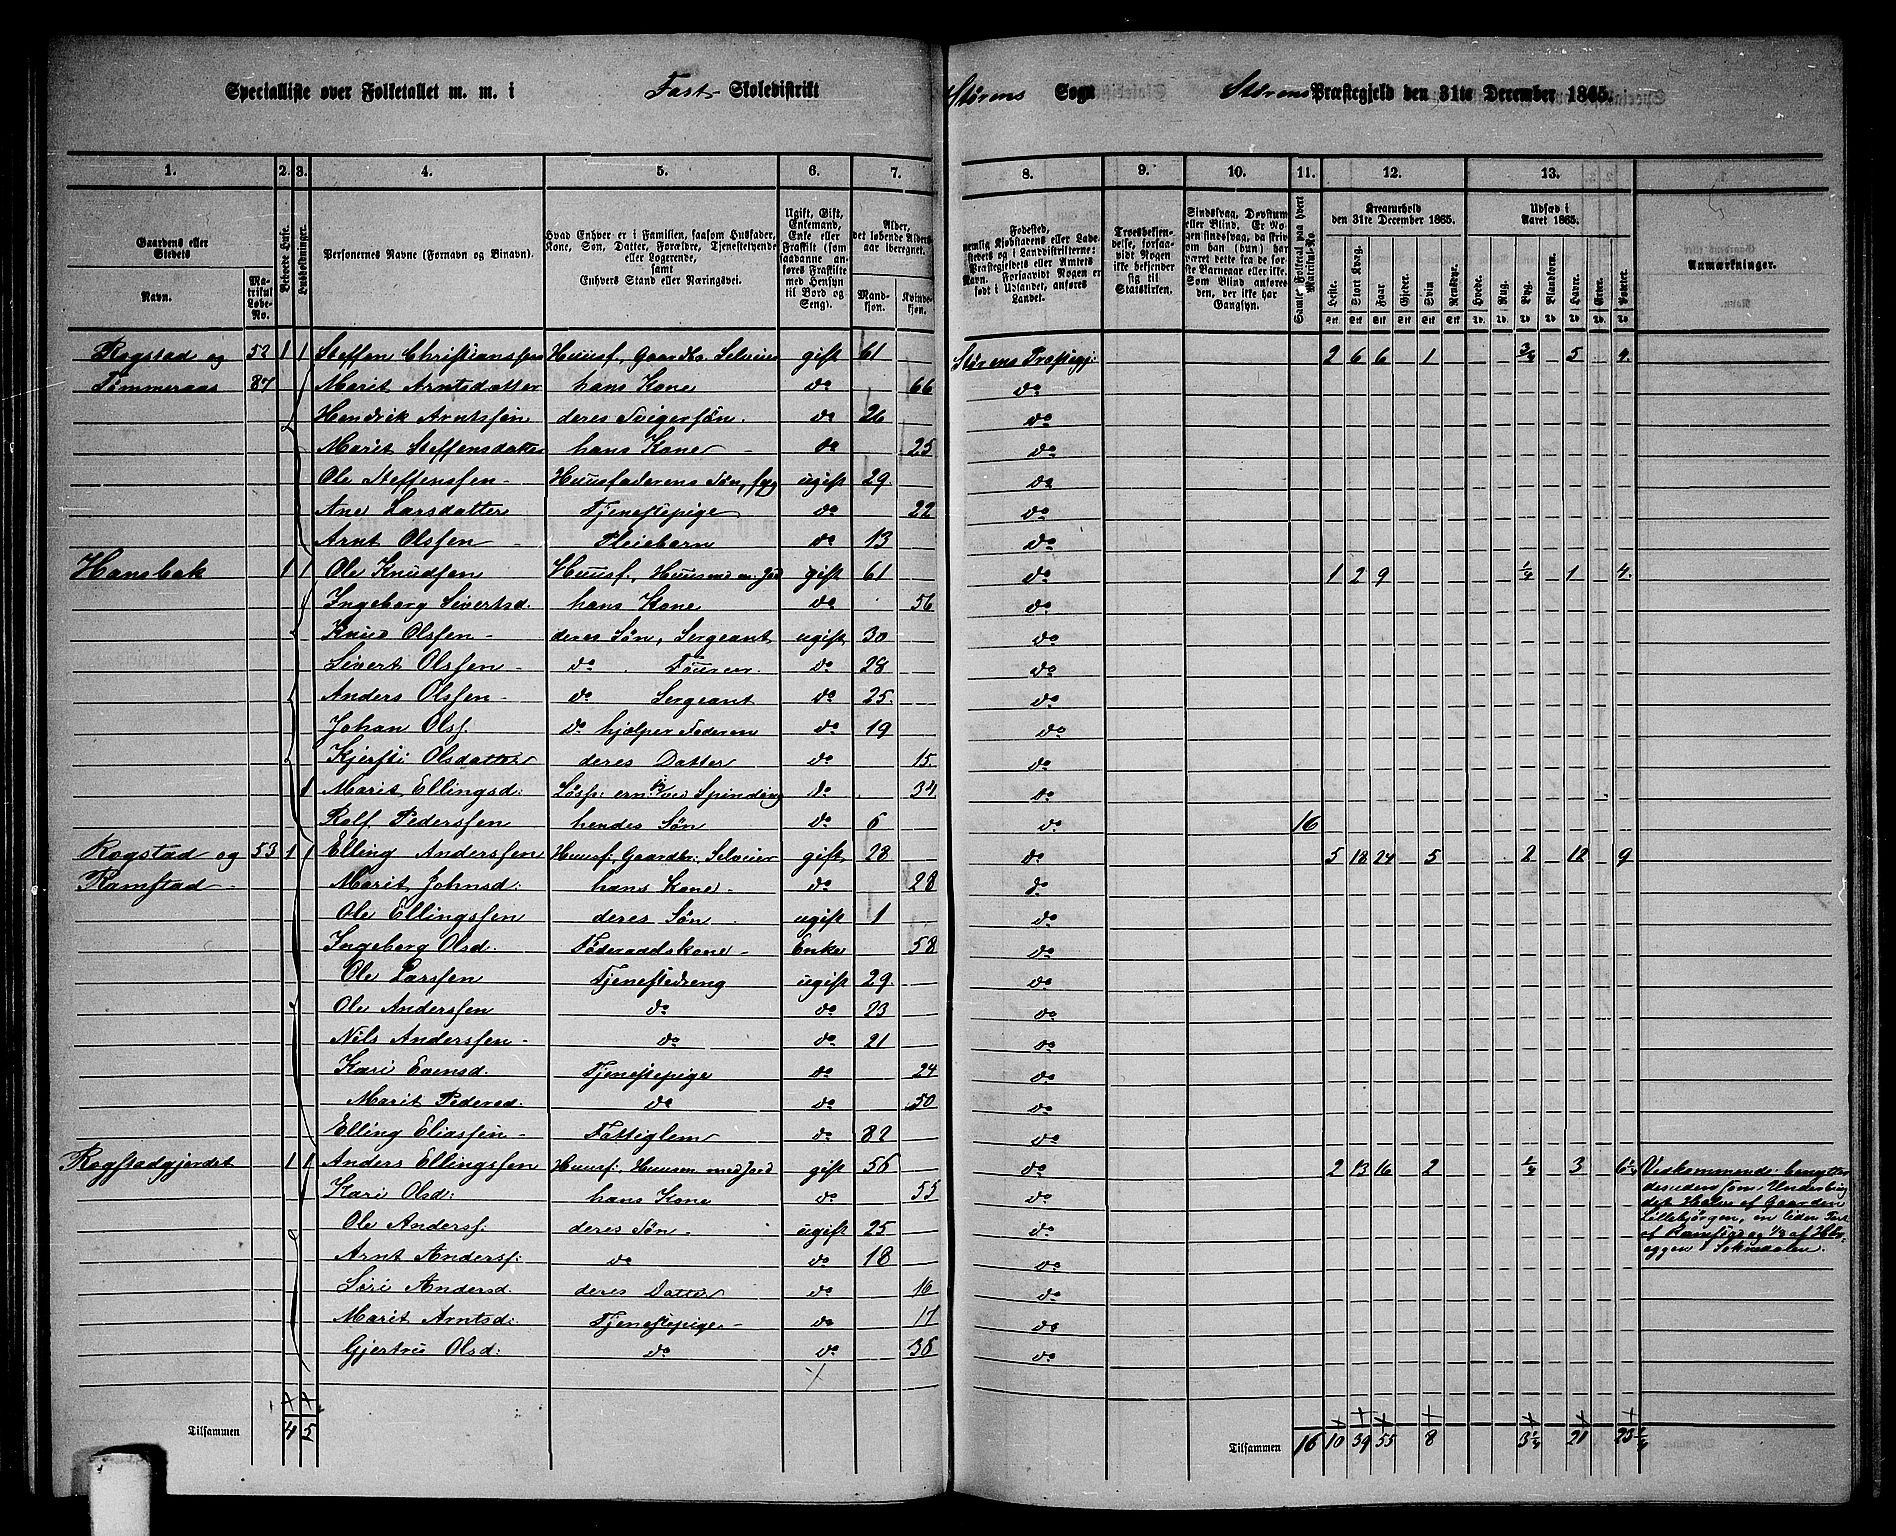 Specialliste over Folketallet m. m. i Fast Skoledistrikt Størens Sogn Størens Præstegjeld den 31te December 1865.
1. 2. 3. 4. 5. 6. 7. 8. 9. 10. 11. 12. 13.
Gaardens eller Stedets Navn. Matrikul Løbe-No. Beboede Huse. Husholdninger. Personernes Navne (Fornavn og Binavn). Hvad Enhver er i Familien, saasom Husfader, Kone, Søn, Datter, Forældre, Tjenestetyende eller Logerende, samt Enhvers Stand eller Næringsvei. Ugift, Gift, Enkemand, Enke eller Fraskilt (som saadanne anføres Fraskilte med Hensyn til Bord og Seng). Alder, det løbende Alders-aar iberegnet. Mandkjøn. Kvindekjøn.
Kreaturhold den 31te December 1865. Udsæd i Aaret 1865. Anmærkninger.
Heste. Stort Kvæg. Faar. Gjeder. Svin. Rensdyr. Hvede. Rug. Byg. Blandkorn. Havre. Erter. Poteter.
Rogstad og 52 1 1 Steffen Christianssen Huusf. Gaardbr. Selveier gift 61 Størens Præstegj: 2 6 6 1 3/4 5 4.
Tømmeraas 87 Marit Arntsdatter hans Kone do 66 do
Hendrik Arntssen deres Svigersøn. do 26 do
Marit Steffensdatter hans Kone do 25 do
Ole Steffenssen Huusfaderens Søn, ugift 29 do
Ane Larsdatter Tjenestepige do 22 do
Arnt Olssen Pleiebarn do 13 do
Hansbak 1 1 Ole Knudsen Huusf. Huusmd m. Jord gift 61 do 1 2 9 1/4 1 4.
Ingeborg Sivertsd. hans Kone do 56 do
Knud Olssen deres Søn, Sergeant ugift 30 do
Sivert Olssen do do 28 do
Anders Olssen do Sergeant do 25 do
Johan Olsf. do hjelper Faderen do 19 do
Kjersti Olsdatter deres Datter do 15. do
1 Marit Ellingsd: ved Spinding do 34 do
Rolf Pederssen hendes Søn do 6 do 16
Rogstad og 53 1 1 Elling Anderssen Huusf. Gaardbr: Selveier gift 28 do 5 18 24 5 2 12 9
Ramstad Marit Johnsd: hans Kone do 28 do
Ole Ellingssen deres Søn ugift 1 do
Ingeborg Olsd. Føderaadskone Enke 58 do
Ole Larssen Tjenestedreng ugift 29 do
Ole Anderssen do do 23 do
Nils Anderssen do do 21 do
Kari Evensd. Tjenestepige do 24 do
Marit Pedersd. do do 50 do
Elling Eliassen Fattiglem do 82 do
Rogstadgjerdet 1 1 Anders Ellingssen Huusf: Huusm med Jord gift 56 do 2 13 16 2 1/2 3 6 1/4
Kari Olsd: hans Kone do 55 do
Ole Andersf: deres Søn ugift 25 do
Arnt Andersf: do do 18 do
Andersd. deres Datter do 16 do
Marit Arntsd: Tjenestepige do 17 do
Gjertru Olsd: do do 36 do
Vedkommende benytter
desuden som Underbrug
det Halve af Gaarden
Lillebjørgen, en liden Part
af Ramstad og 1/3 af
eggen i Soknedalen.
Tilsammen 4 5 Tilsammen 16 10 39 55 8 3 1/4 21 23 1/4